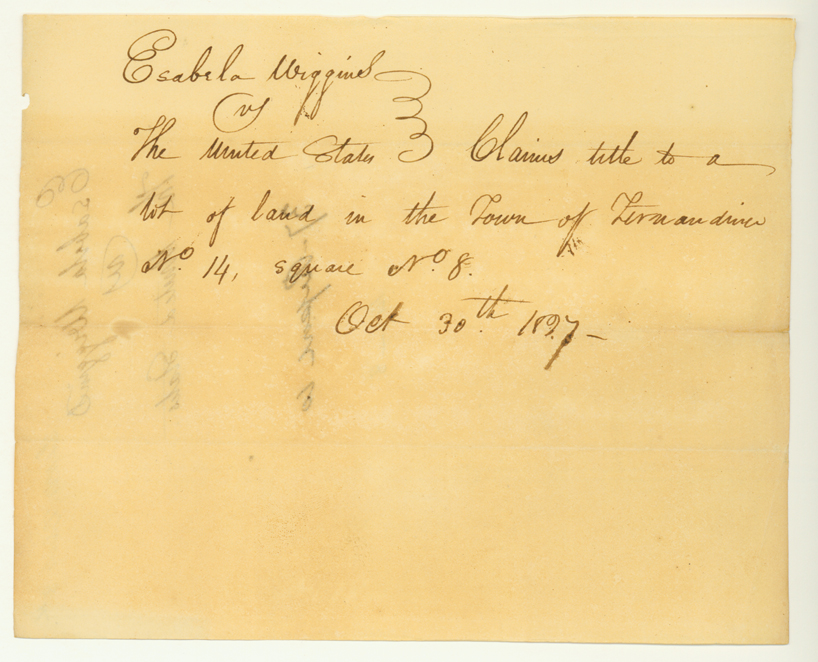 Esabela Wiggins
vs
The United States } Claims title to a
lot of land in the Town of Fernandina
No. 14, square No. 8.
Oct 30th. 1827 –